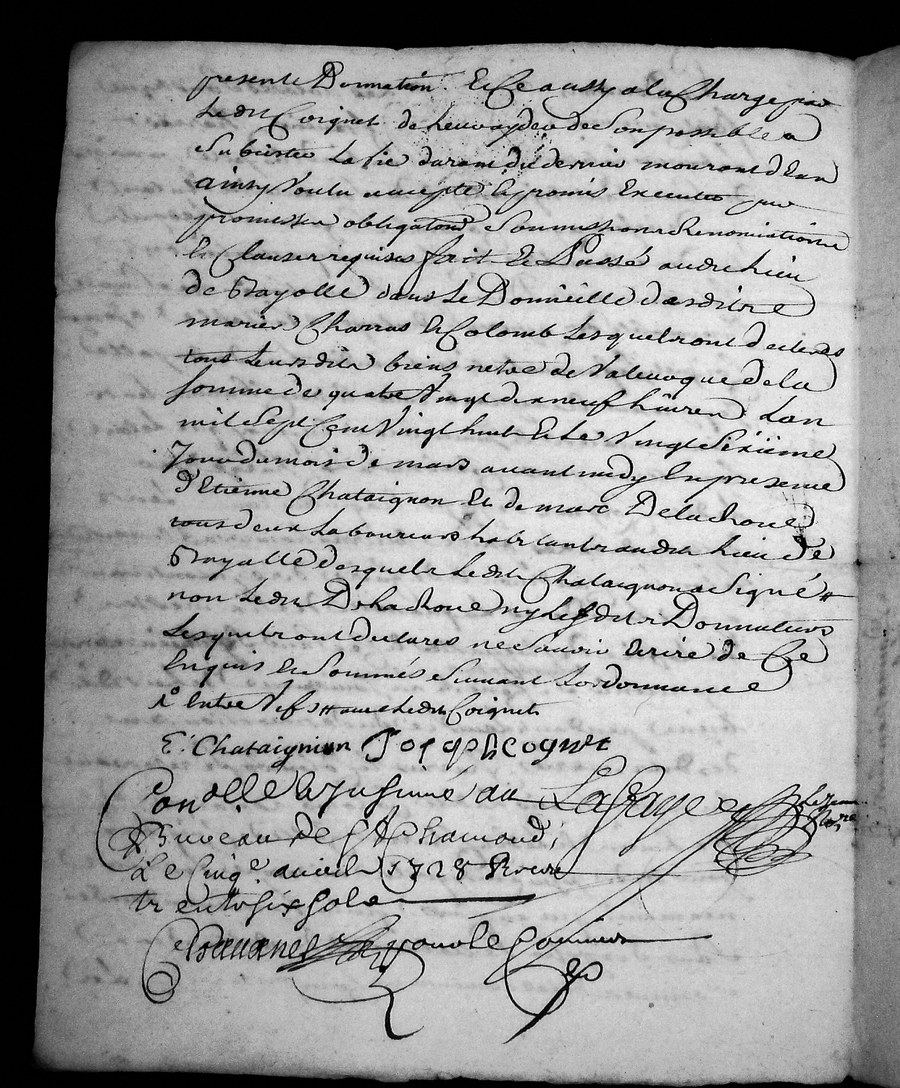 presente Donnation. Et Ce aussy a la Charge par
Ledit Coignet de leur ayder de Son possible a
Subcister La vie durant du dernier mourant d'Eux
ainsy Voulu accepté Et promis Executer par
promesses obligations Soumissions Renonciations
Et Clauses requises fait Et Passé audit Lieu
de Bayolle dans Le Domicille desdits
mariés Charras Et Colomb Lesquels ont declarés
tous Leursdits biens n'etre de Valeur que de la
Somme de quatre Vingt dix neuf Livres L'an
mil Sept Cent Vingt huit Et Le Vingt Sixième
Jour du mois de mars avant midy En presence
d'Etienne Chataignon Et de marc Delachoue
tous deux Laboureurs habitants audit Lieu de
Bayolle desquels Ledit Chataignon a Signé #
non Ledit Delachoue ny Lesdits Donnateurs
Lesquels ont declarés ne Savoir Ecrire de Ce
Enquis Et Sommés Suivant L'ordonnance
1° Entre Vifs # avec Ledit Coignet
E. Chataignion Joseph Cognet
Conollé Et Insinué au LaGaye
Bureau de St Chamond,
Le Cinqe avril 1728 Receu
trente Six Sols